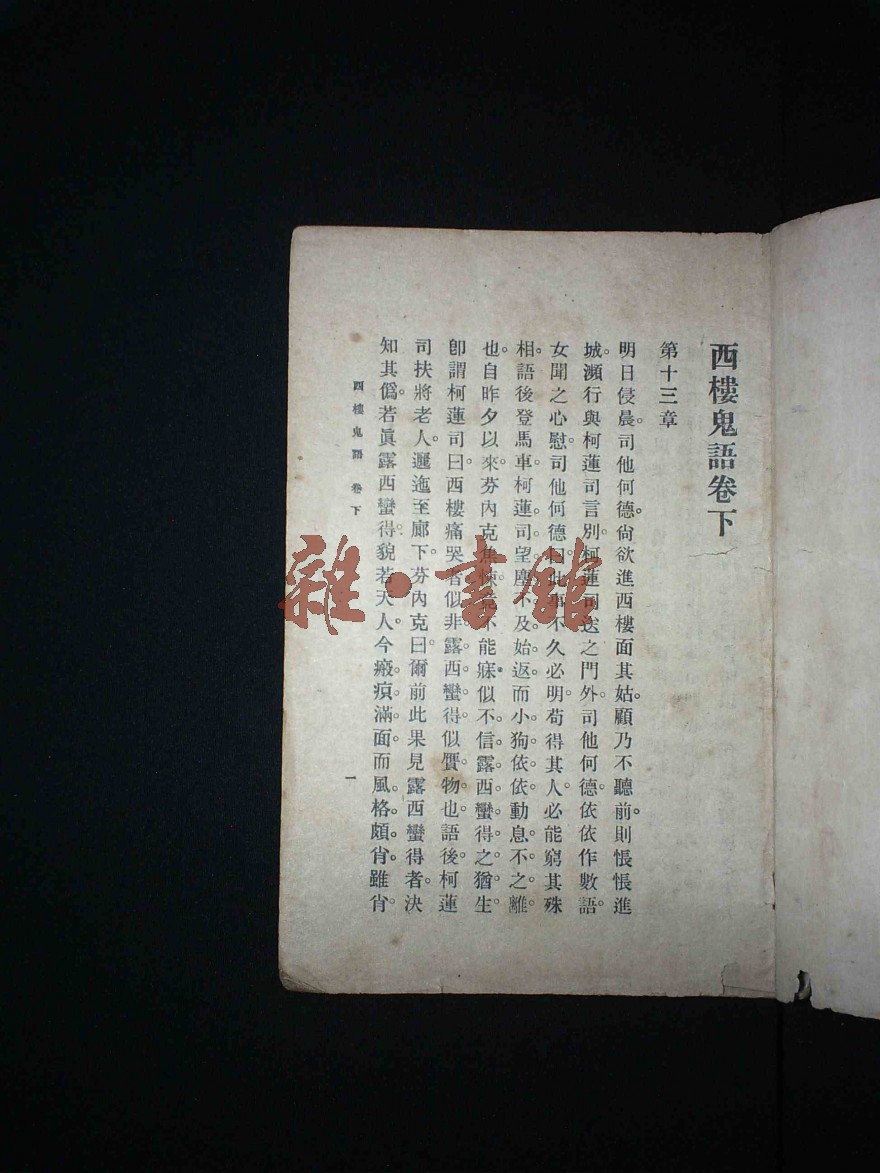 西樓鬼語卷下
第十三章
明日侵晨。司他何德尙欲進西樓面其姑。顧乃不聽前。則悵悵進
城。瀕行與柯蓮司言別。柯蓮司送之門外。司他何德依依作數語。
女聞之心慰。司他何德曰。此事不久必明。苟得其人。必能窮其殊
相。語後登馬車。柯蓮司望塵不及。始返。而小狗依依動息不之離
也。自昨夕以來。芬內克焦悚 不能寐。似不信露西蠻得之猶生。
卽謂柯蓮司曰。西樓痛哭者。似非露西蠻得。似贋物也。語後柯蓮
司扶將老人。邐迤至廊下。芬內克曰。爾前此果見露西蠻得者。決
知其僞。若眞露西蠻得。貌若天人。今瘢痕滿面。而風格頗肖。雖肖
西樓鬼語 卷下
一
雜·書館